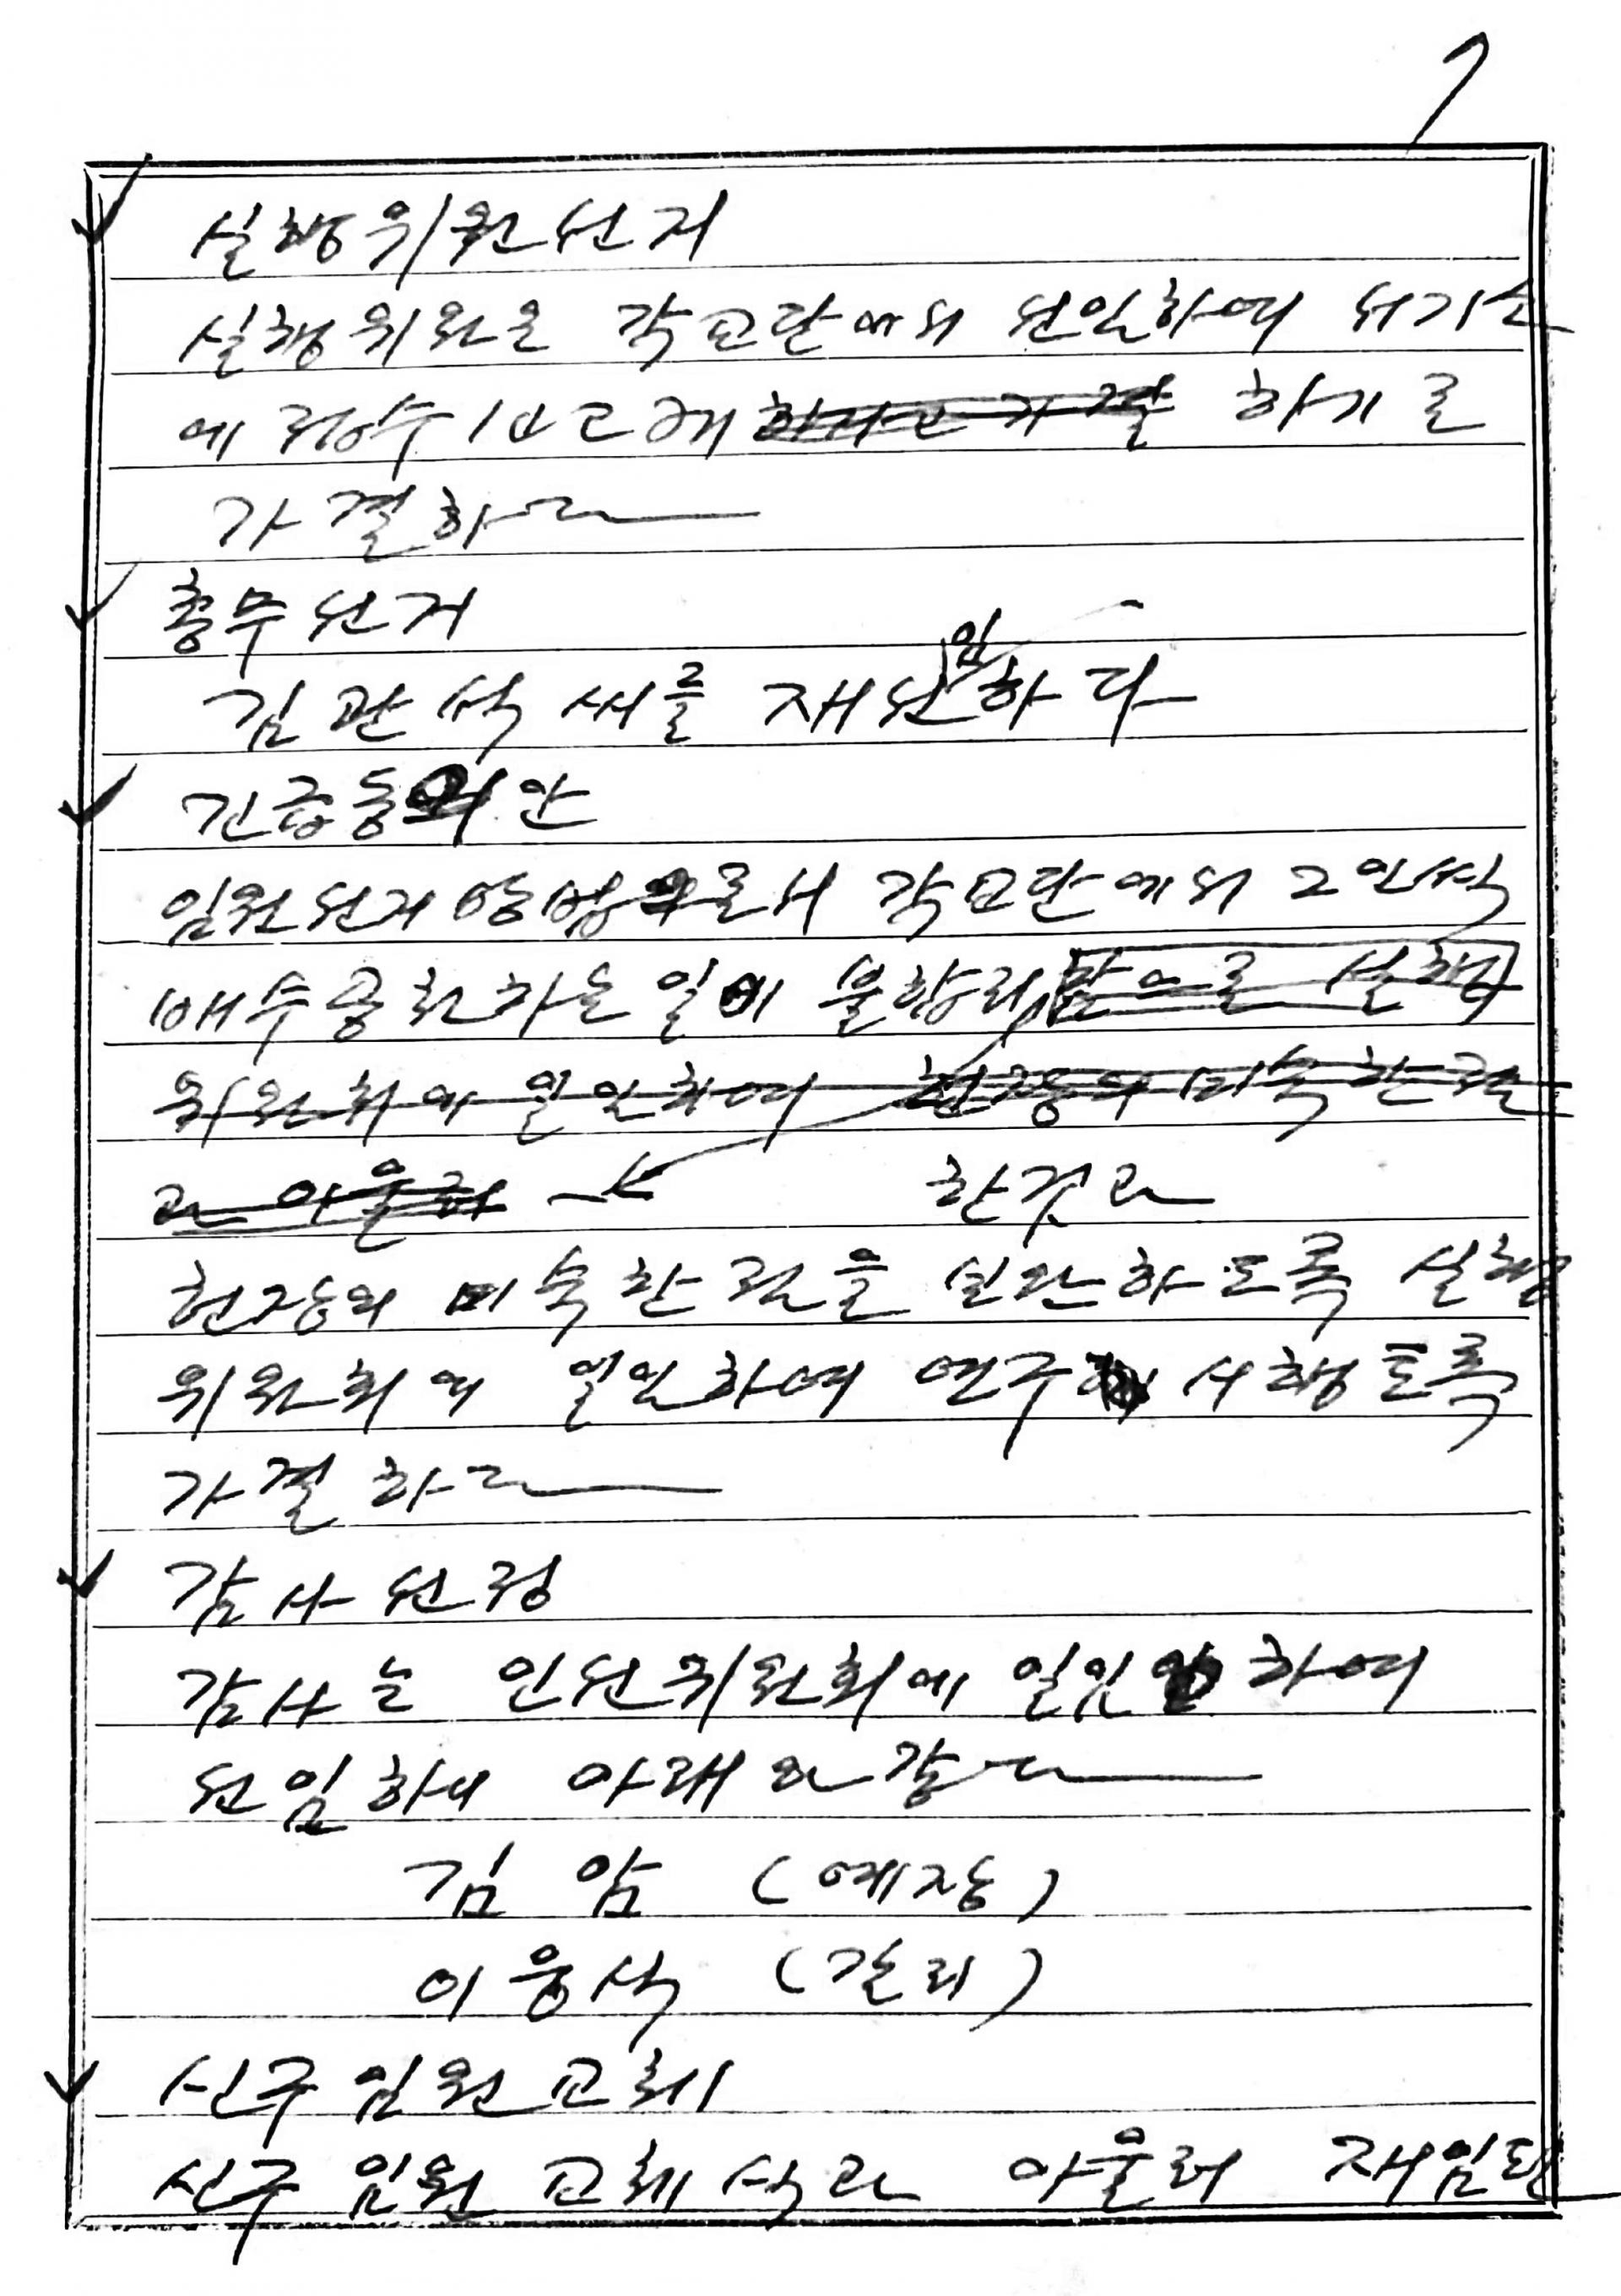 7
실행위원선거
실행위원은 각교단에서 선임하여 서기
에 하기로
가결하다
총무선거
김관석 씨를 재선임하다
긴급동의안
임원선거 방법으로서 각교단에서 2인씩
배수공천하는 일에 불합리 점으로 실행
위원회에 일임하여 헌장의 미숙한 점
과 아울러 한것과
헌장의 미숙한 점을 보완하도록 실행
위원회에 일임하여 연구 시행토록
가결하다
감사선정
감사는 인선위원회에 일임하여
선임하니 아래와 같다
김암 (예장)
이웅석 (감리)
신구임원교체
신구임원교체식과 아울러 재임된